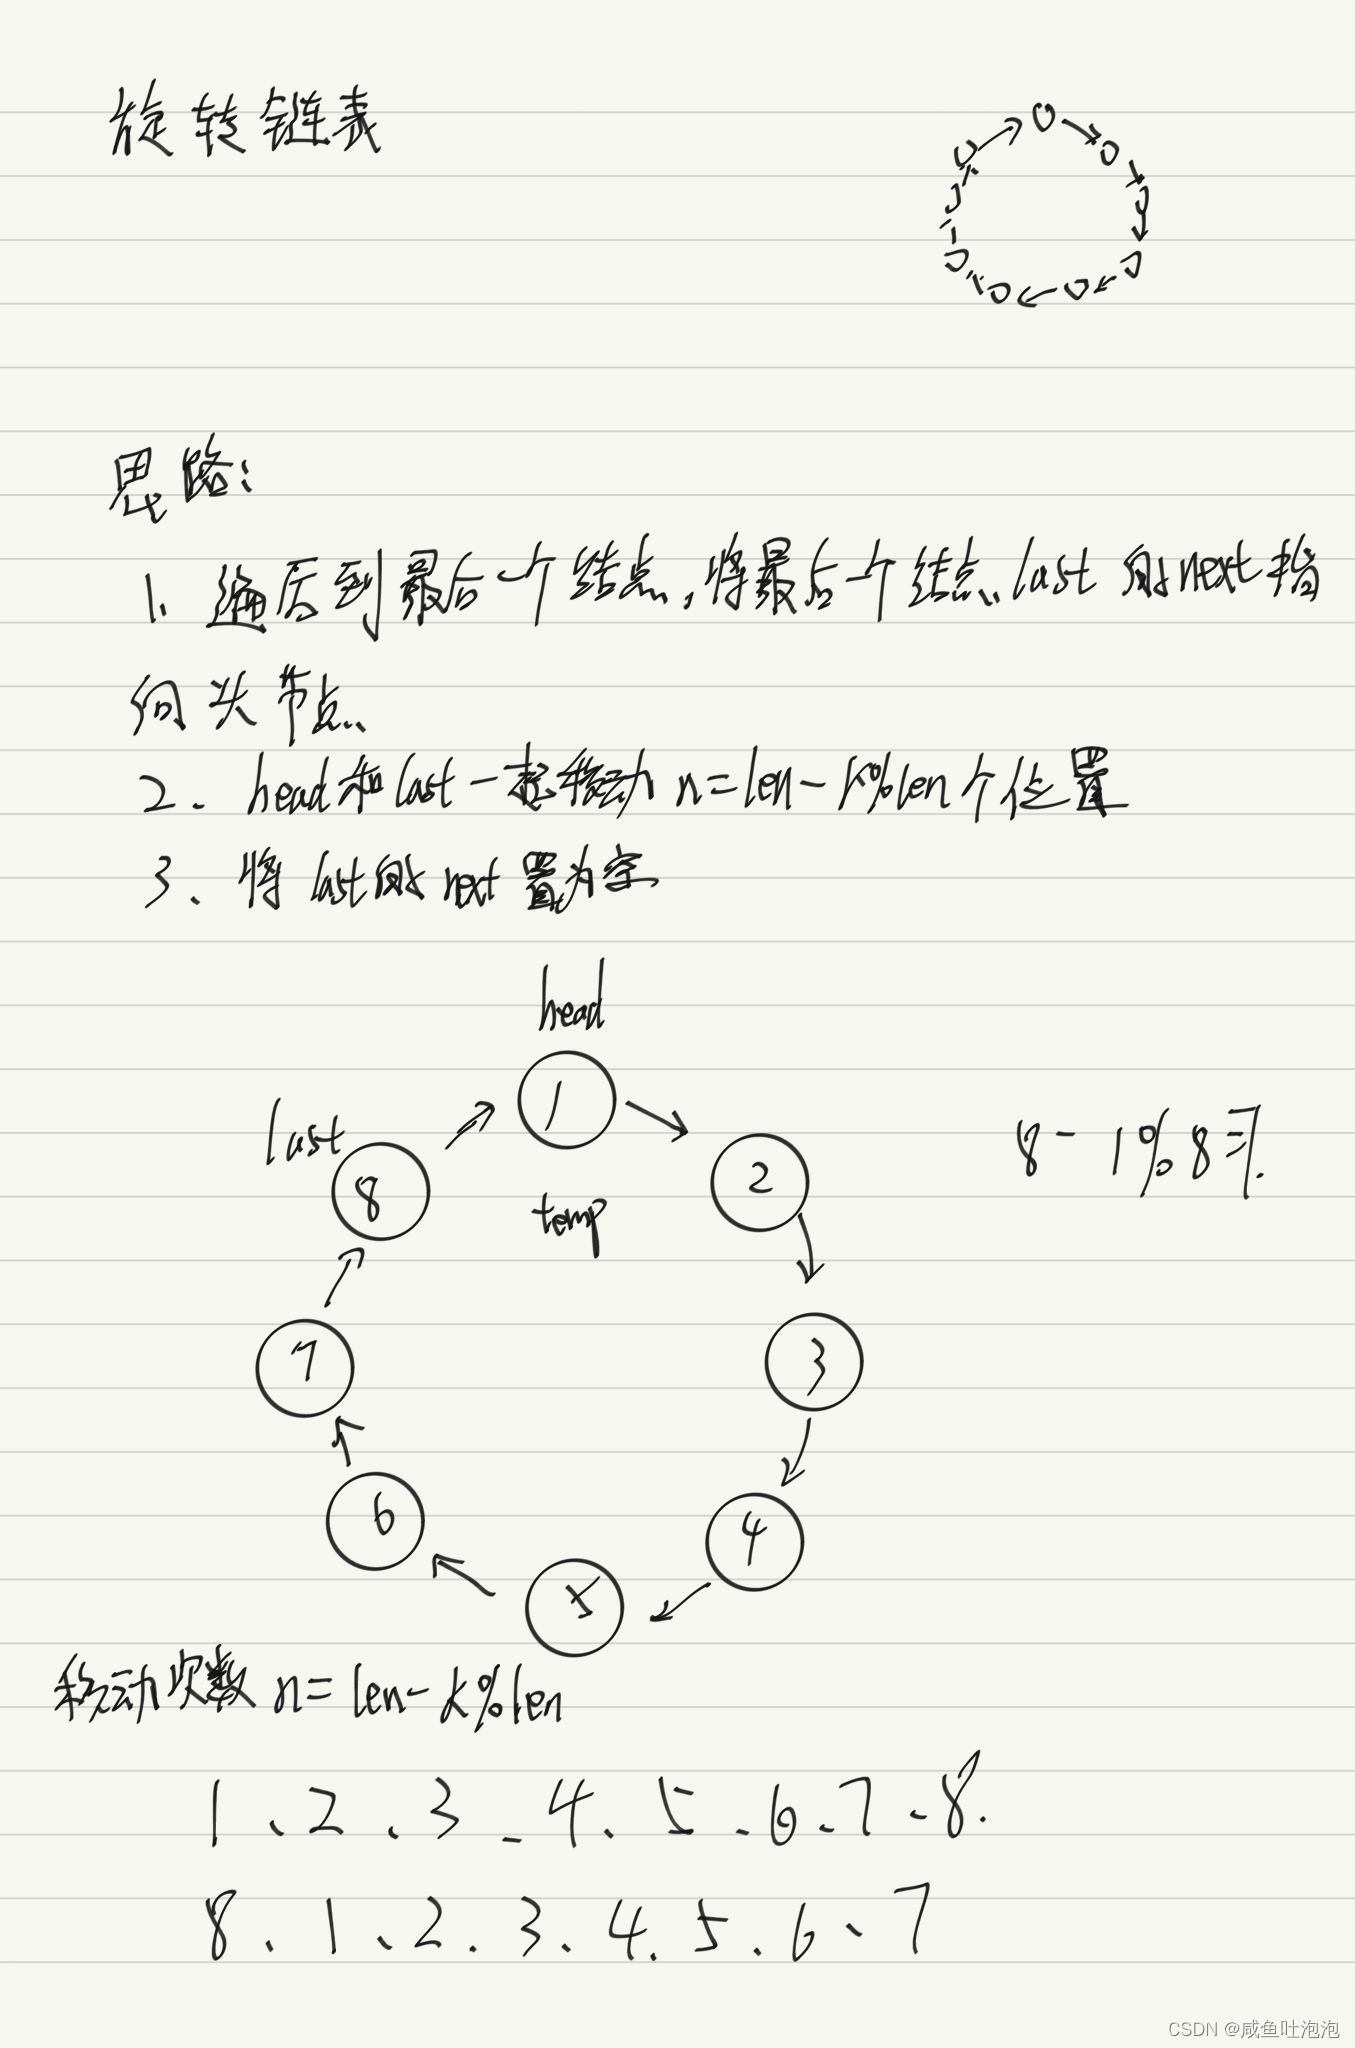 旋转链表
思路:
1. 遍历到最后一个结点,将最后一个结点last的next指
向头节点
2. head和last一起移动n=len-k%len个位置
3、将last的next置为空
head
1
last
8
2
8-1%8=7.
temp
7
3
6
4
5
移动次数 n=len-k%len
1、2、3、4、5、6、7、8.
8、1、2、3、4、5、6、7
CSDN @咸鱼吐泡泡